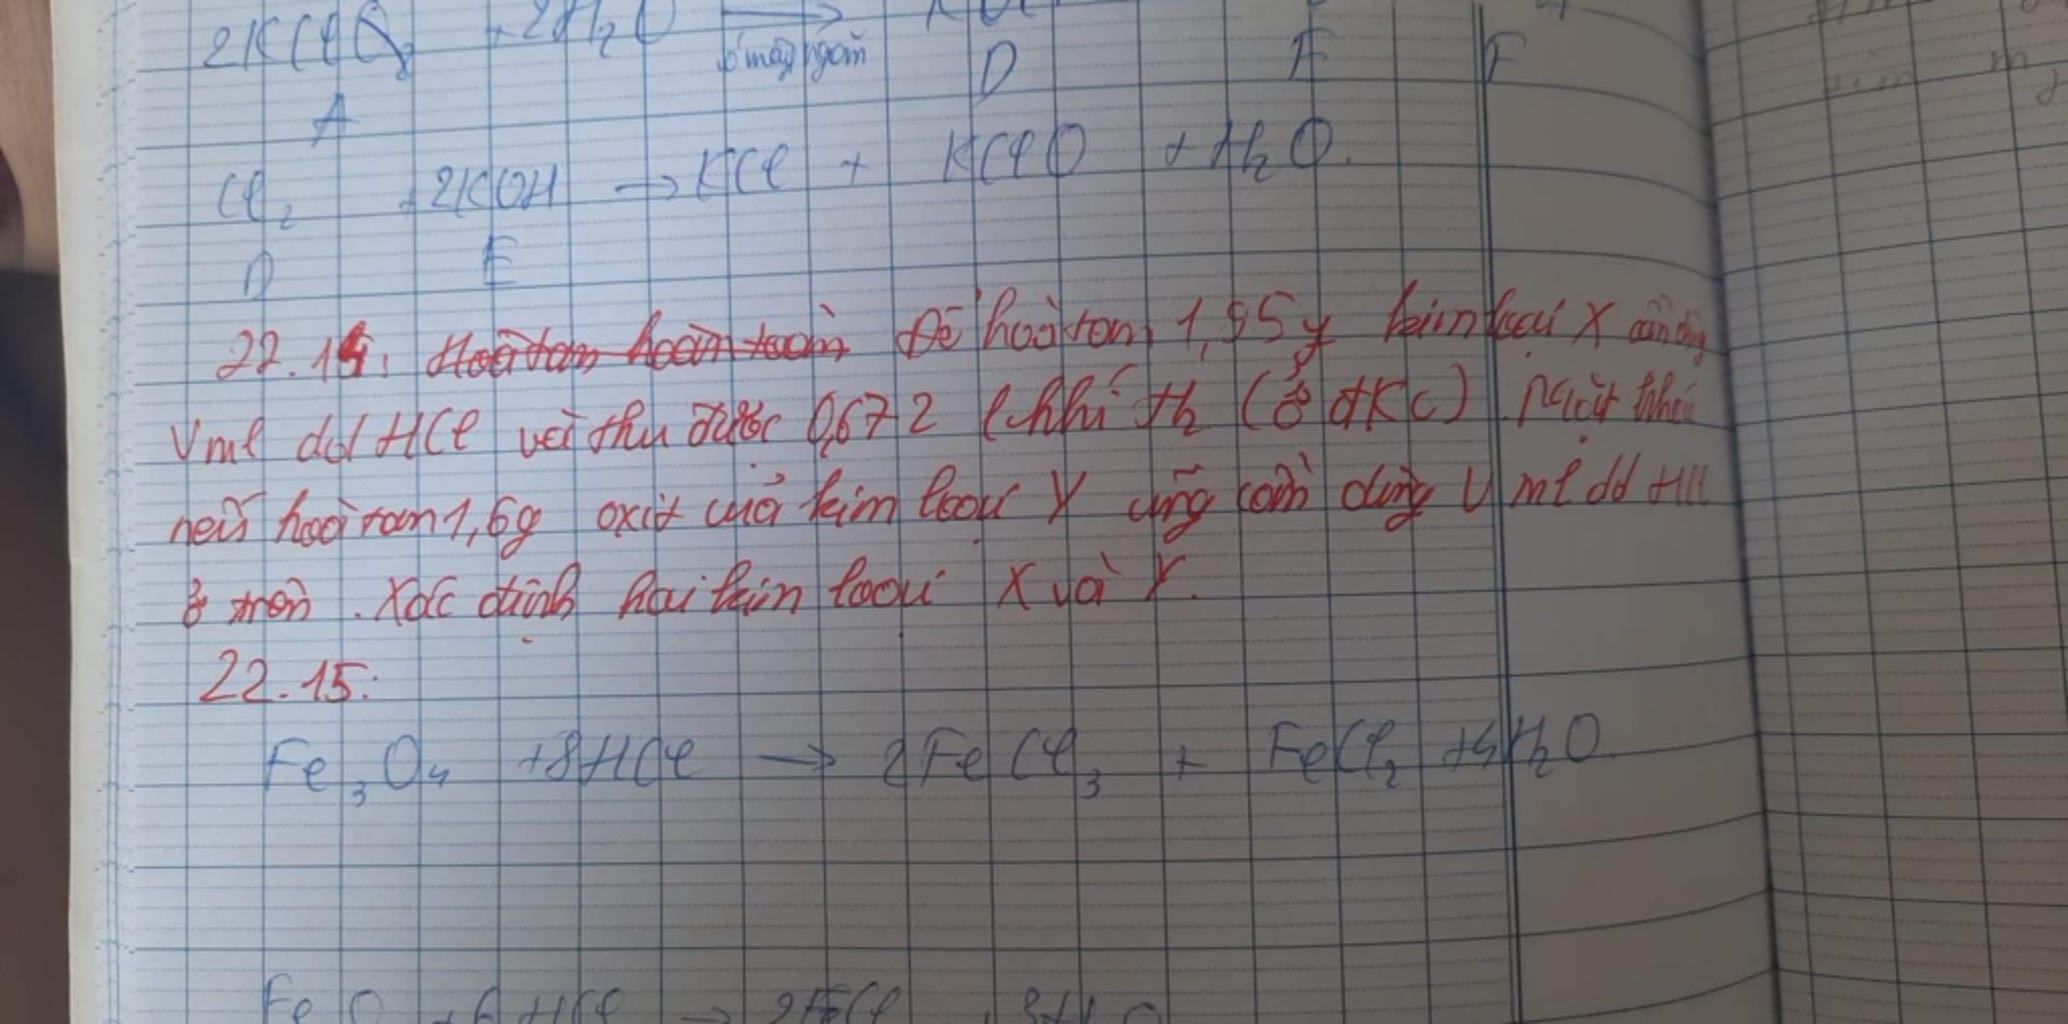 2KClO₃ + 2H₂O →
có màng ngăn
A D E F
Cl₂ + 2KOH → KCl + KClO + H₂O.
D E
22.14: Hoà tan hoàn toàn Để hoà tan 1,95g kim loại X cần dùng
V ml dd HCl và thu được 0,672 l khí H₂ (ở đkc). Mặt khác
nếu hoà tan 1,6g oxit của kim loại Y cũng cần dùng V ml dd HCl
ở trên. Xác định hai kim loại X và Y.
22.15:
Fe₃O₄ + 8HCl → 2FeCl₃ + FeCl₂ + 4H₂O